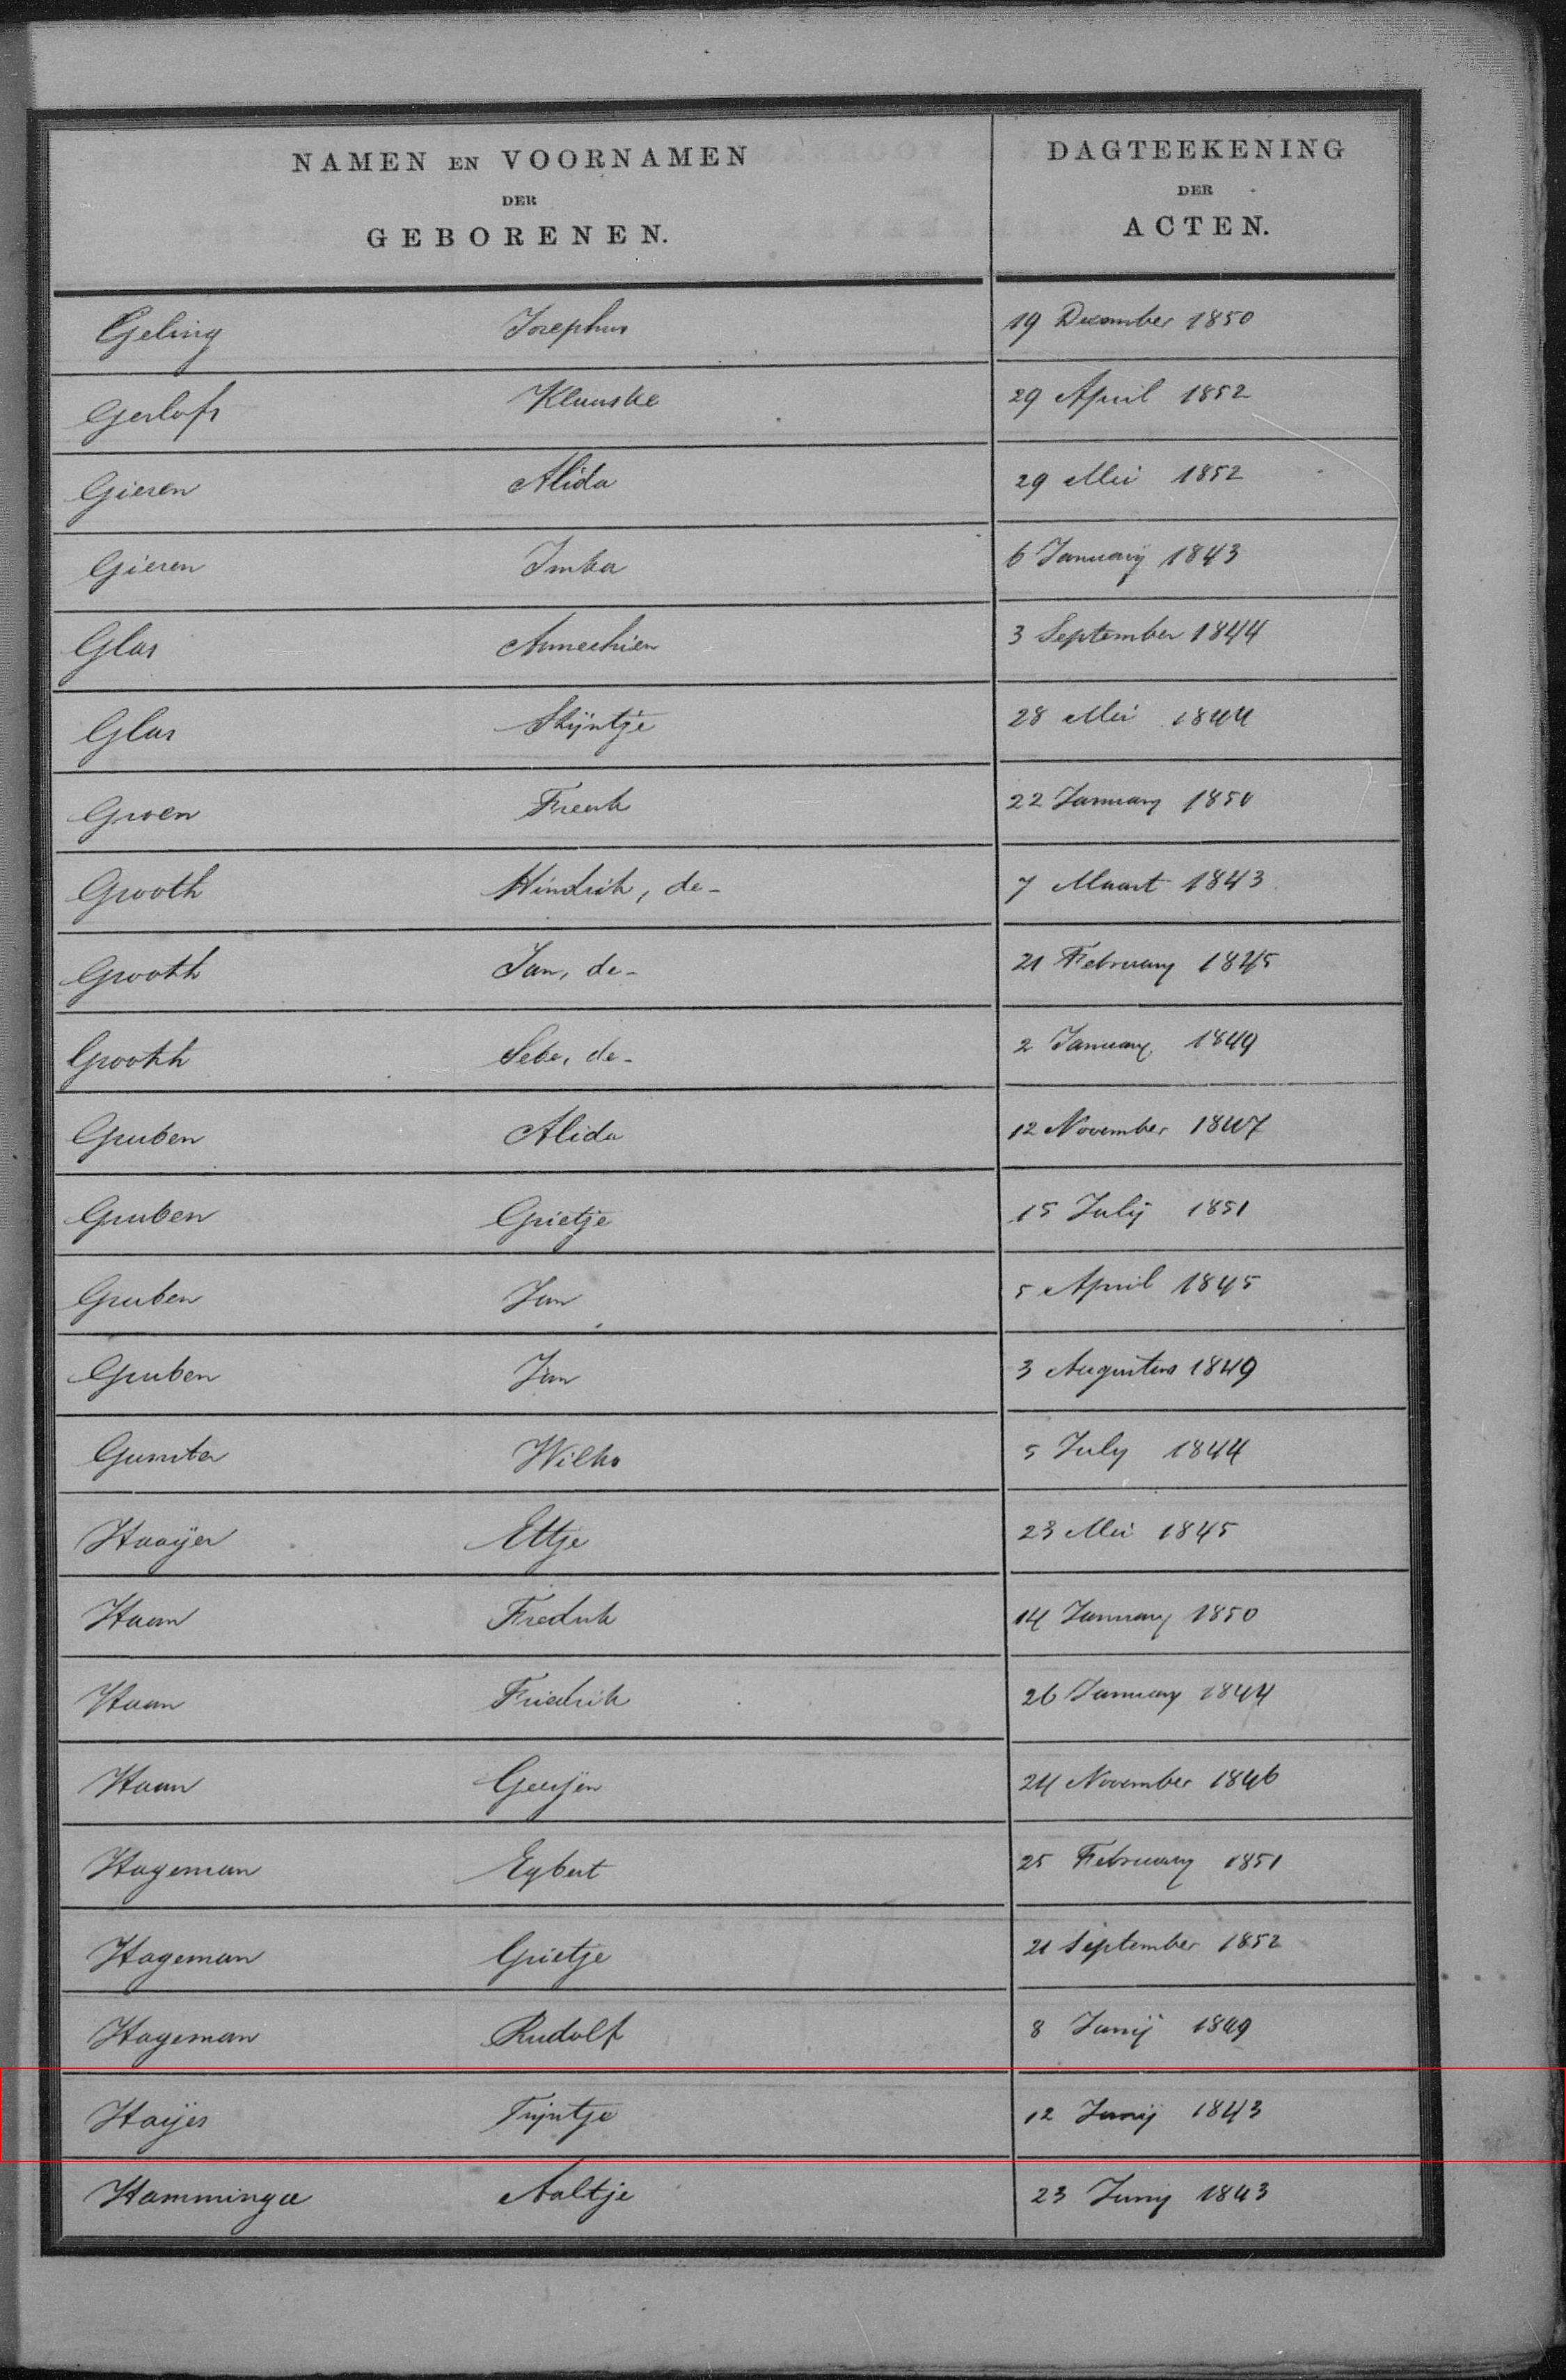 NAMEN EN VOORNAMEN
DER
GEBORENEN.
DAGTEEKENING
DER
ACTEN.
Geling Josephus 19 December 1850
Gerlofs Klaaske 29 April 1852
Gieren Alida 29 Mei 1852
Gieren Imka 6 Januarij 1843
Glas Annechien 3 September 1844
Glas Stijntje 28 Mei 1844
Groen Freerk 22 January 1850
Grooth Hindrik, de- 7 Maart 1843
Grooth Jan, de- 21 February 1845
Grooth Sebe, de- 2 January 1849
Gruben Alida 12 November 1847
Gruben Grietje 15 Julij 1851
Gruben Jan 5 April 1845
Gruben Jan 3 Augustus 1849
Gunster Wilko 5 July 1844
Haayer Ettje 23 Mei 1845
Haan Fredrik 14 January 1850
Haan Friedrik 26 January 1844
Haan Geesjen 24 November 1846
Hageman Egbert 25 February 1851
Hageman Grietje 21 September 1852
Hageman Rudolf 8 Junij 1849
Haijes Trijntje 12 Junij 1843
Hamminga Aaltje 23 Junij 1843